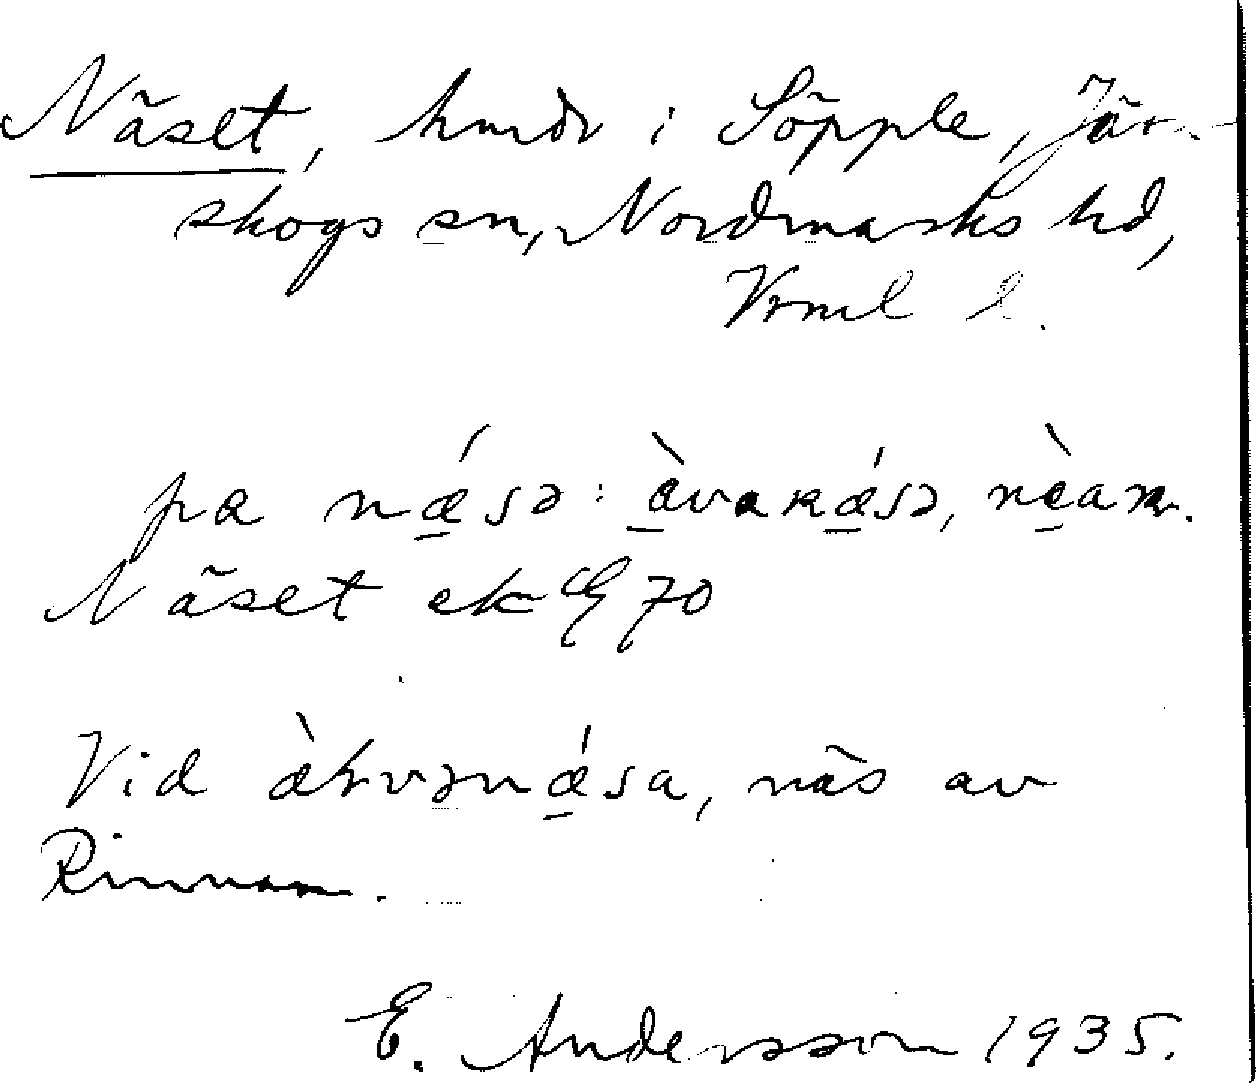 Näset, hmdr i Söpple, Jär-
skogs sn, Nordmarks hd,
Vrml l.
pa nǽsə: æ̀vanǽsə, nèan.
Näset ek 70
Vid æ̀kvənǽsa, näs av
Rinnan.
E. Andersson 1935.